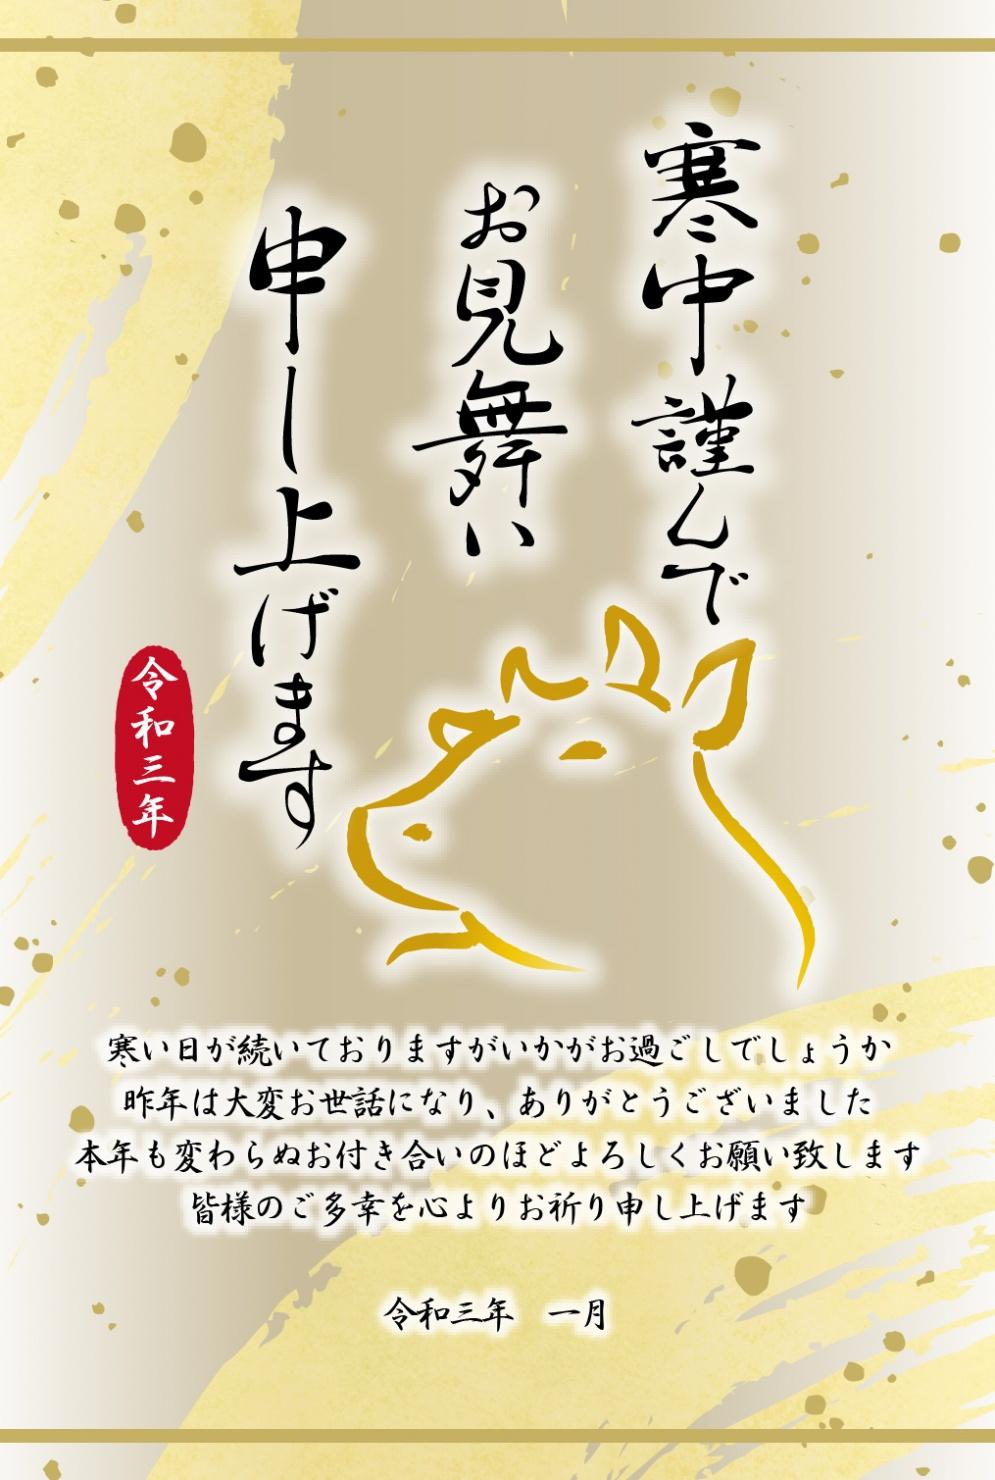 寒中謹んで
お見舞い
申し上げます
令和三年
寒い日が続いておりますがいかがお過ごしでしょうか
昨年は大変お世話になり、ありがとうございました
本年も変わらぬお付き合いのほどよろしくお願い致します
皆様のご多幸を心よりお祈り申し上げます
令和三年　一月